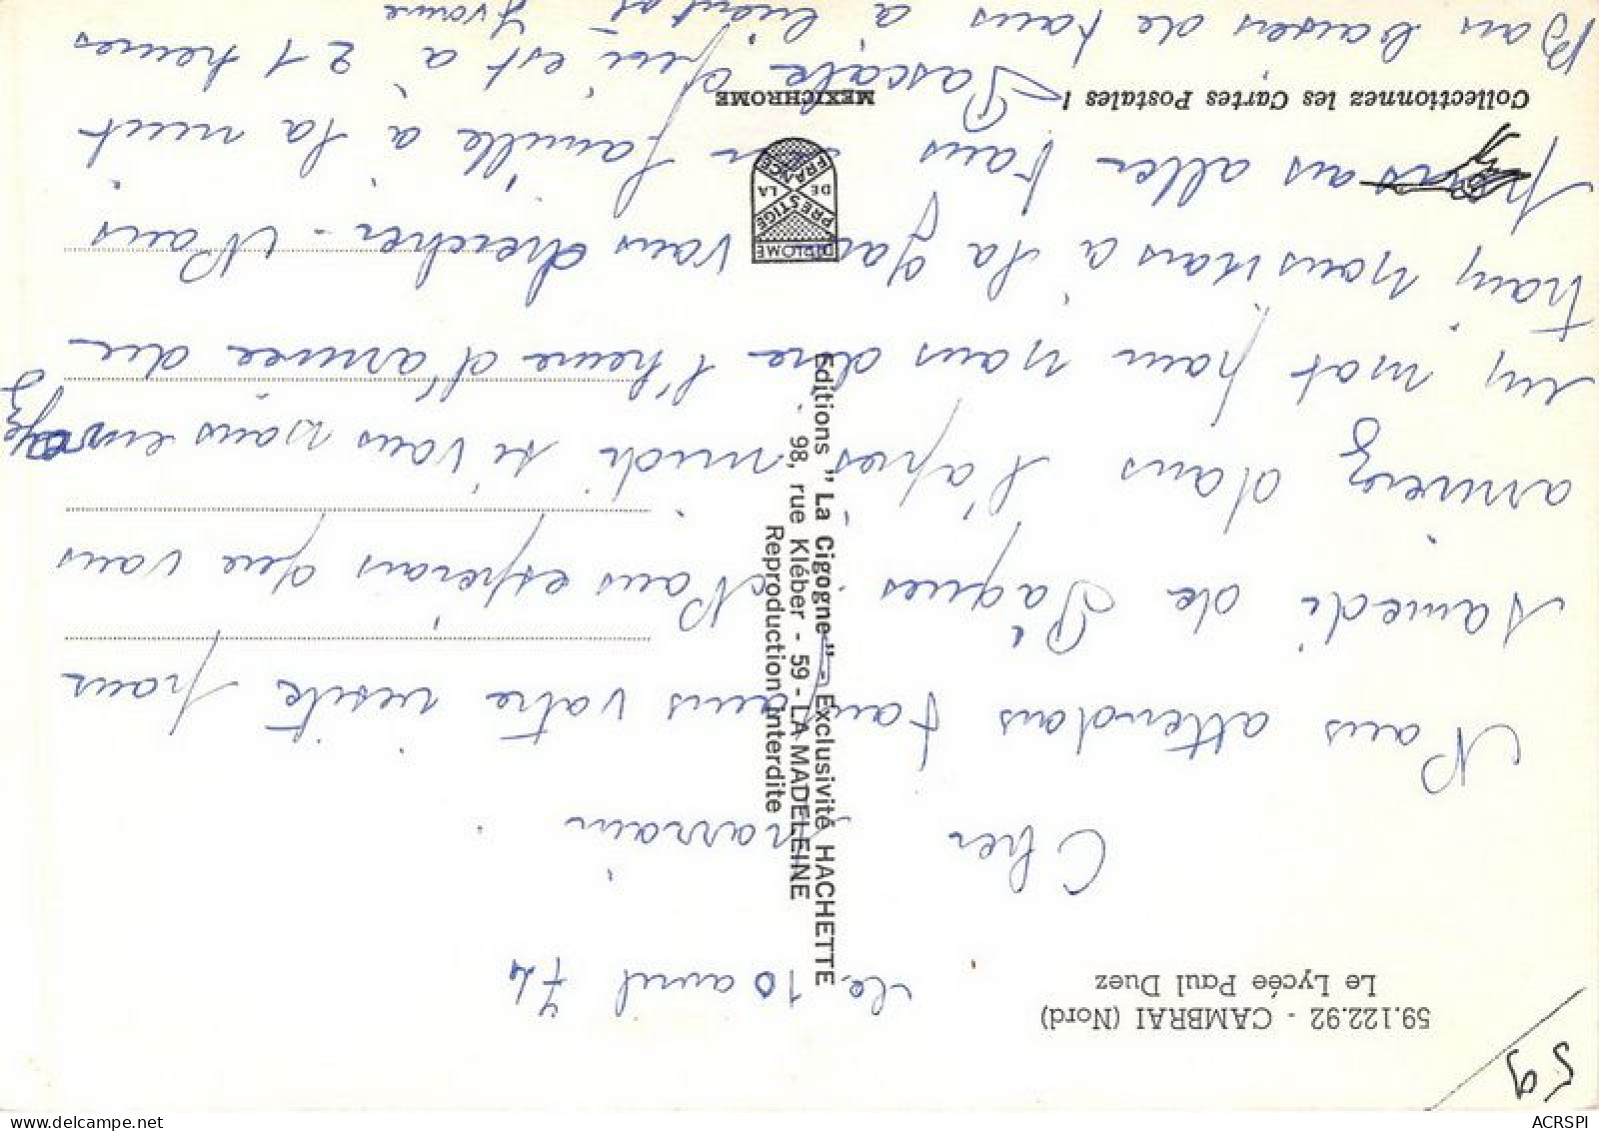 59
59.122.92 - CAMBRAI (Nord)
Le Lycée Paul Duez
le 10 avril 74
Cher parrain
Nous attendons toujours votre visite pour
samedi de Pâques. Nous espérons que vous
arriverez dans l'après midi si vous nous envoyez
un mot pour nous dire l'heure d'arrivée du
train nous irons à la gare vous chercher - Nous
pensons aller tous en famille à la nuit
Pascale qui est à 21 heures
Bons baisers de tous à bientôt
Yvonne
Collectionnez les Cartes Postales !
MEXICHROME
DIPLOME
PRESTIGE
DE LA
FRANCE
Editions "La Cigogne" - Exclusivité HACHETTE
98, rue Kléber - 59 - LA MADELEINE
Reproduction interdite
ACRSPI